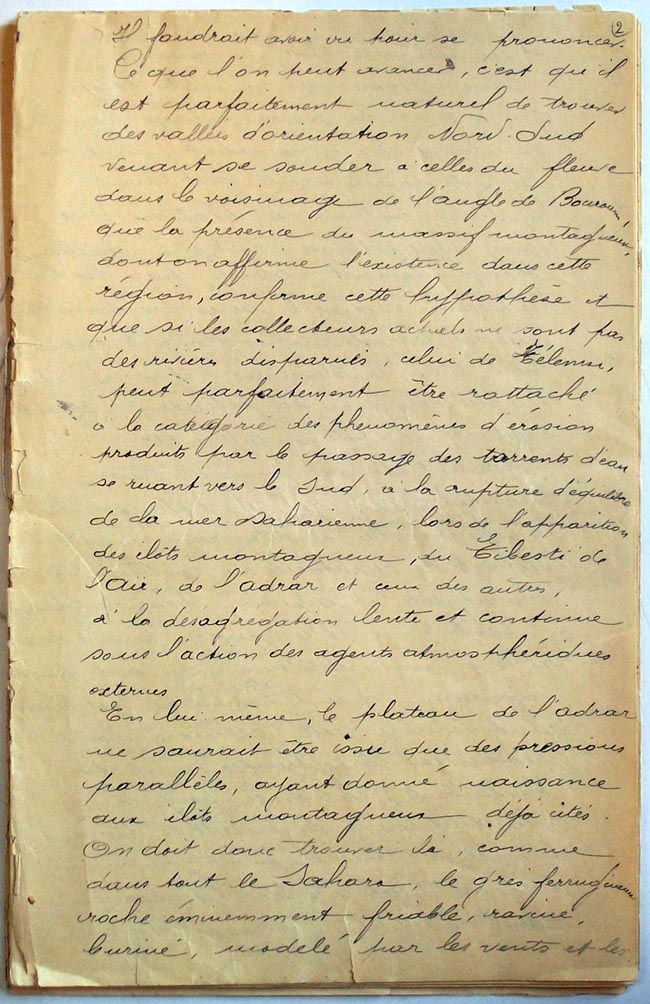 2
Il faudrait avoir vu pour se prononcer.
Ce que l'on peut avancer, c'est qu'il
est parfaitement naturel de trouver
des vallées d'orientation Nord-Sud
venant se souder à celles du fleuve
dans le voisinage de l'angle de Bouroum,
que la présence du massif montagneux,
dont on affirme l'existence dans cette
région, confirme cette hyppothèse et
que si les collecteurs actuels ne sont pas
des rivières disparues, celui de Télemsi,
peut parfaitement être rattaché
à la catégorie des phénomènes d'érosion
produits par le passage des torrents d'eau
se ruant vers le Sud, à la rupture d'équilibre
de la mer Saharienne, lors de l'apparition
des ilôts montagneux, du Tibesti de
l'Aïr, de l'adrar et ceux des autres,
à la désagrégation lente et continue
sous l'action des agents atmosphériques
externes
En lui-même, le plateau de l'adrar
ne saurait être issu que des pressions
parallèles, ayant donné naissance
aux ilôts montagneux déjà cités.
On doit donc trouver là, comme
dans tout le Sahara, le grès ferrugineux
roche éminemment friable, ravine,
buriné, modelé par les vents et les